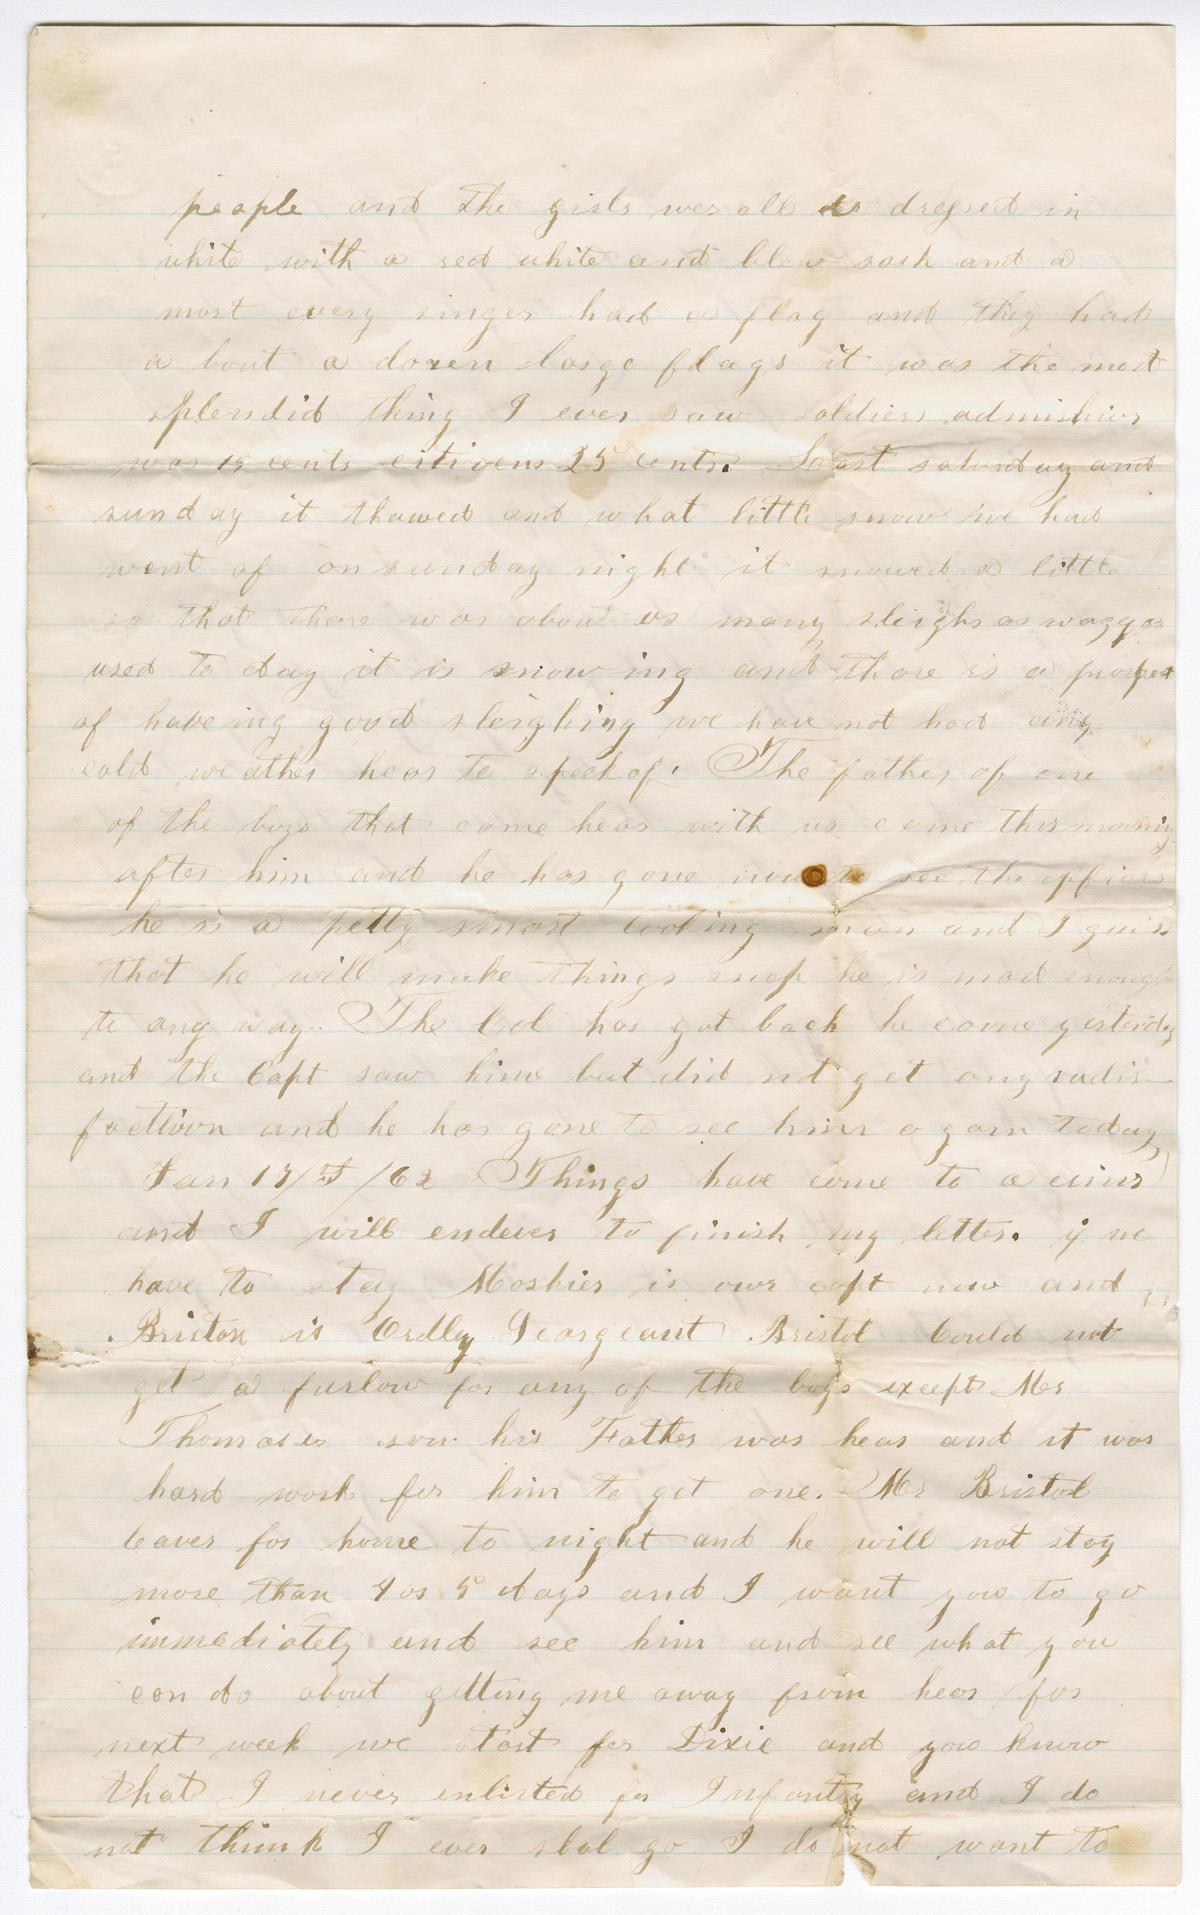 people and the girls wer all dressed in
white with a red white and blew sash and a
most every singer had a flag and they had
a bout a dozen large flags it was the most
splendid thing I ever saw soldiers admishion
was 15 cents citizens 25 cents. Last saturday and
sunday it thawed and what little snow we had
went of on sunday night it snowed a little
so that thare was about as many sleighs as waggons
used to day it is snowing and thare is a prospect
of haveing good sleighing we have not had any
cold weather hear to speek of. The father of one
of the boys that come hear with us come this morning
after him and he has gone now to see the officers
he is a petty smart looking man and I guess
that he will make things snap he is mad enough
to any way. The Col has got back he come yesterday
and the Capt saw him but did not get any sadis-
faction and he has gone to see him again today
Jan 17/ /62 Things have come to a
and I will endever to finish my letter. if we
have to stay Moshier is our capt now and
Briston is Ordly Seargeant Bristol could not
get a furlow for any of the boys except Mr
Thomases son his Father was hear and it was
hard work for him to get one. Mr Bristol
leaves for home to night and he will not stay
more than 4 or 5 days and I want you to go
immediately and see him and see what you
can do about getting me away from hear for
next week we start for Dixie and you know
that I never enlisted for Infantry and I do
not think I ever shal go I do not want to